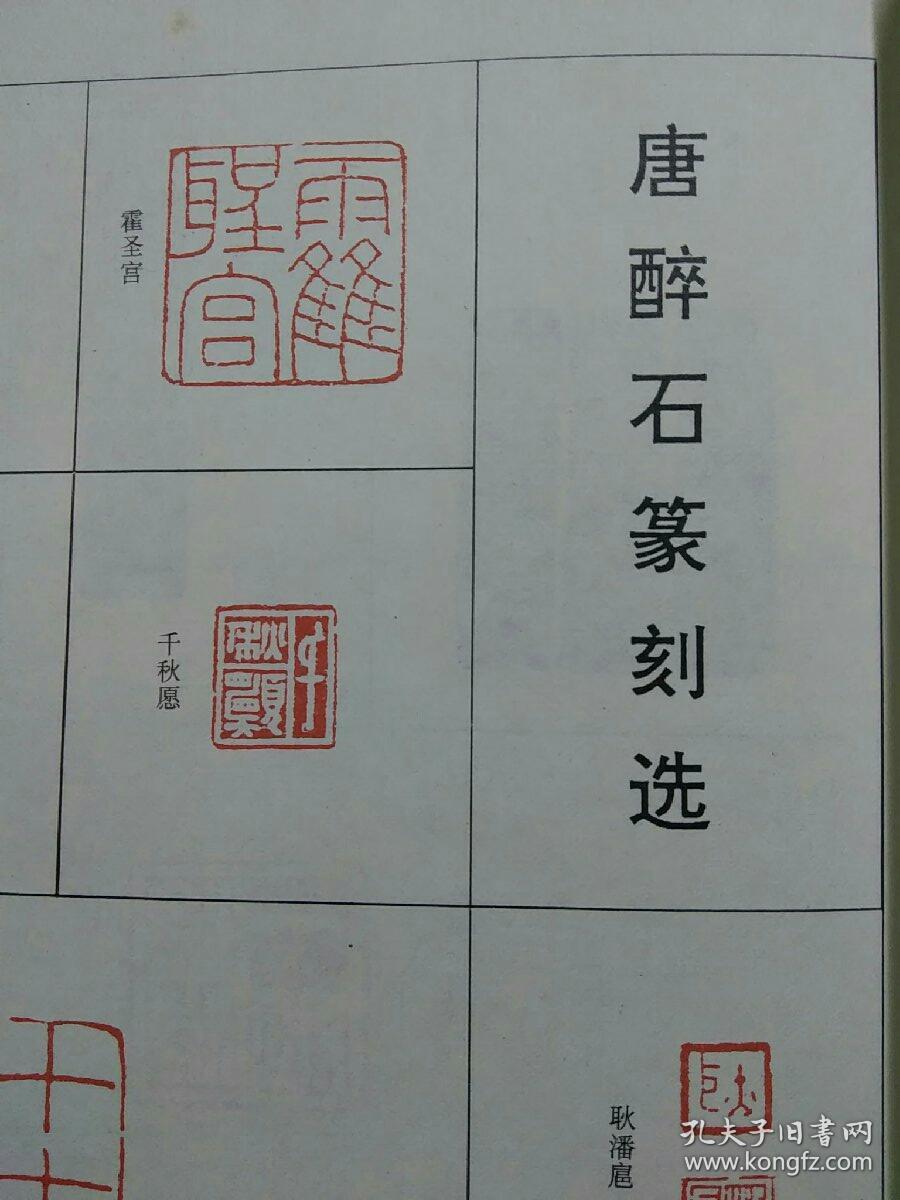 唐醉石篆刻选
霍圣宫
千秋愿
耿潘扈
孔夫子旧书网
www.kongfz.com